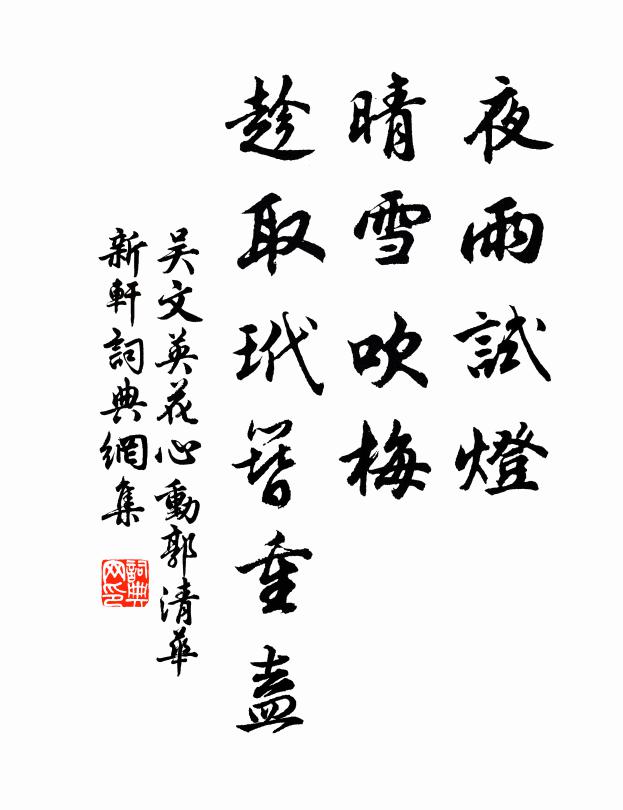 夜雨試燈
晴雪吹梅
趁取玳簪重盍
吴文英花心動郭清華
新軒詞典網集
詞典网印